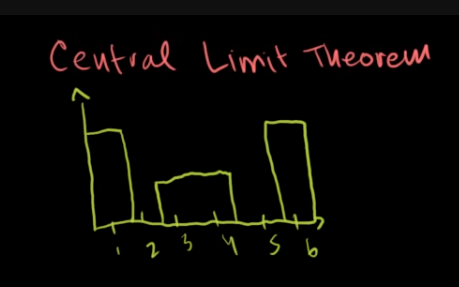 Central Limit Theorem
1 2 3 4 5 6